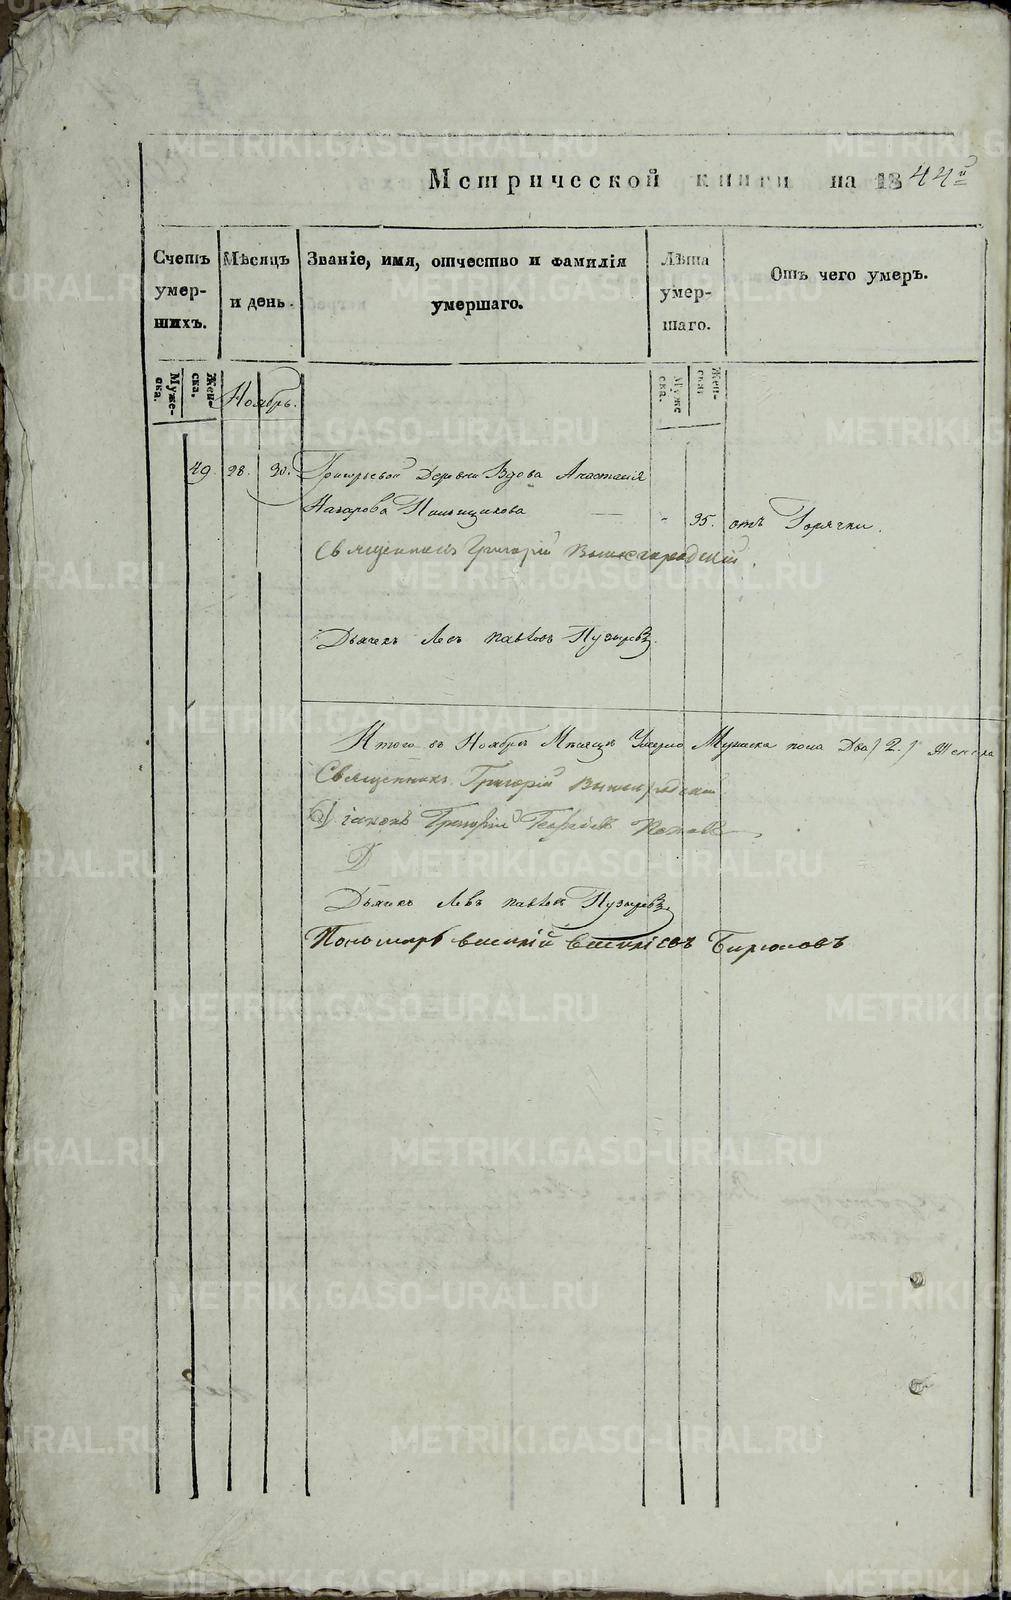 Метрической книги на 1844й
Счетъ умер- шихъ.
Мѣсяцъ и день.
Званіе, имя, отчество и фамилія умершаго.
Лѣта умер- шаго.
Отъ чего умеръ.
Муже- ска.
Жен- ска.
Ноябрь.
Муже ска.
Жен- ска
49 28. 30. Григорьевой Деревни Вдова Анастасія
Назарова 35. отъ Горячки.
Священникъ Григорій Вышегородскій.
Дьячекъ Левъ Павловъ Пузыревъ.
Итого въ Ноябрѣ Мѣсяцѣ Умерло Мужеска пола Два /2./ Женска
Священникъ Григорій Вышегородскій
Діаконъ Григорій Поповъ
Д
Дьячекъ Левъ Павловъ Пузыревъ
Пономарь Василій Бирюковъ
METRIKI.GASO-URAL.RU